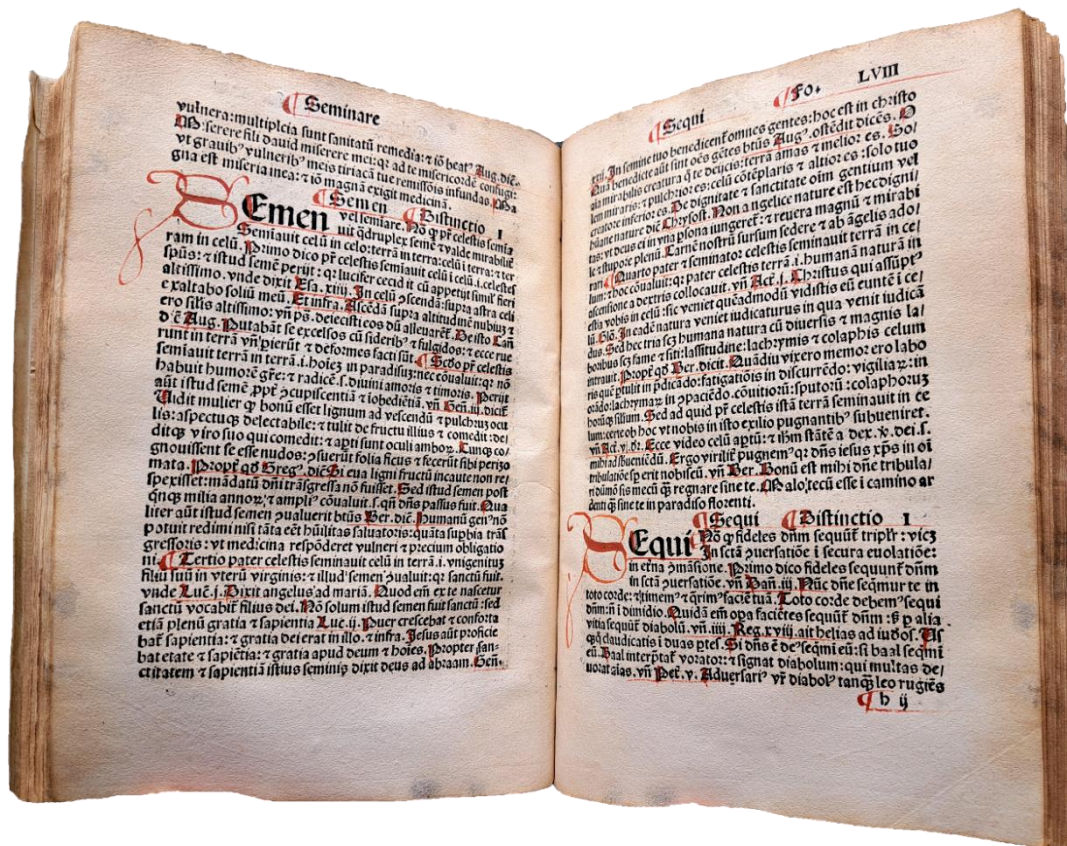 Seminare
vulnera: multipleia sunt sanitatū remedia: ⁊ iō beatꝰ Aug. dic̄.
serere fili dauid miserere mei: qꝛ ad te misericordē confugi:
vt grauibꝰ vulneribꝰ meis tiriacā tue remissōis infundas. Ma
gna est miseria mea: ⁊ iō magnā exigit medicinā.
Semen Distinctio I
SEmen vel semiare. Nō ꝙ pr̄ celestis semīa
uit q̄druplex semē ⁊ valde mirabilit̄
Semiauit celū in celo: terrā in terra: celū i terra: ⁊ ter
ram in celū. Primo dico pr̄ celestis semīauit celū i celū. i. celestes
spūs: ⁊ istud semē perijt: qꝛ lucifer cecid it cū appetijt simil' fieri
altissimo. vnde dixit Esa. xiiij. In celū ↄscendā: supra astra celi
exaltabo soliū meū. Et infra. Ascēdā supra altitudinē nubiuꝫ ⁊
ero silis altissimo: vn̄ ps. deiecisti eos dū alleuarēt. De isto
Aug. Putabāt se excelsos cū sideribꝰ ⁊ fulgidos: ⁊ ecce rue
runt in terrā vn̄ pierūt ⁊ deformes facti sūt. Scdo pr̄ celestis
semiauit terrā in terrā. i. hoīeꝫ in paradisuꝫ: nec cōualuit: qꝛ nō
habuit humorē gr̄e: ⁊ radicē. s. diuini amoris ⁊ timoris. Perijt
aūt istud semē ꝓpt̄ ↄcupiscentiā ⁊ iobediētiā. vn̄ Gen̄. iij. dicit̄
Uidit mulier ꝙ bonū esset lignum ad vescendū ⁊ pulchruꝫ ocu
lis: aspectuqꝫ delectabile: ⁊ tulit de fructu illius ⁊ comedit: de
ditqꝫ viro suo qui comedit: ⁊ apti sunt oculi amboꝝ. Cunqꝫ co/
gnouissent se esse nudos: ↄsuerūt folia ficus ⁊ fecerūt sibi perizo
mata. Propt̄ qd̄ Greg'. dic̄ Si eua ligni fructū incaute non re/
spexisset: mādatū dn̄i trāsgressa nō fuisset. Sed istud semen post
qn̄qꝫ milia annoꝝ, ⁊ ampliꝰ cōualuit. s. qn̄ dn̄s passus fuit. Qua
liter aūt istud semen ↄualuerit btūs Ber. dic̄. Humanū genꝰ nō
potuit redimi nisi tāta eēt hūilitas saluatoris: quāta supbia trās
gressoris: vt medicina respōderet vulneri ⁊ precium obligatio
ni. Tertio pater celestis seminauit celū in terrā. i. vnigenituꝫ
filiū suū in vterū virginis: ⁊ illud semen ↄualuit: qꝛ sanctū fuit.
vnde Luc̄. j. Dixit angelus ad mariā. Quod em̄ ex te nascetur
sanctū vocabit̄ filius dei. Nō solum istud semen fuit sanctū: sed
etiā plenū gratia ⁊ sapientia Luc. ij. Puer crescebat ⁊ conforta
bat̄ sapientia: ⁊ gratia dei erat in illo. ⁊ infra. Jesus aūt proficie
bat etate ⁊ sapiētia: ⁊ gratia apud deum ⁊ hoīes. Propter san/
ctitatem ⁊ sapientiā istius seminis dixit deus ad abraam. Gen̄.
Sequi Fo. LVIII
xxi. In semine tuo benedicent̄ omnes gentes: hoc est in christo
Qua benedicte aūt sint oēs gētes btūs Augꝰ. ostēdit dicēs. O
aīa mirabilis creatura q̄ te deijcis: terrā amas ⁊ melior es. Sol/
lem miraris: ⁊ pulchrior es: celū cōtēplaris ⁊ altior es: solo tuo
creatore inferior es. De dignitate ⁊ sanctitate oīm gentium vel
hūane nature dic̄ Chrysost. Non angelice nature est hec digni/
tas: vt deus ei in vna psona iungeret̄: ⁊ reuera magnū ⁊ mirabi
le ⁊ stupore plenū. Carnē nostrū sursum sedere ⁊ ab āgelis ado/
rari. Quarto pater ⁊ seminator celestis seminauit terrā in ce/
lum: ⁊ hoc cōualuit: qꝛ pater celestis terrā. i. humanā naturā in
ascensione a dextris collocauit. vn̄ Act̄. j. Christus qui assūptꝰ
est a vobis in celū: sic veniet quēadmodū vidistis eū euntē i ce/
lū. Glō. In eadē natura veniet iudicaturus in qua venit iudicā
dus. Sed hec tria sꝫ humana natura cū diuersis ⁊ magnis la/
boribus sꝫ fame ⁊ siti: lassitudine: lachrymis ⁊ colaphis celum
intrauit. Propt̄ qd̄ Ber. dicit. Quādiu vixero memor ero labo
ris quē ptulit in p̄dicādo: fatigatiōis in discurrēdo: vigiliaꝝ: in
orādo: lachrymaꝝ in ↄpaciēdo. cōuitiorū: sputorū: colaphoruꝫ
horūqꝫ silium. Sed ad quid pr̄ celestis istā terrā seminauit in ce
lum: certe ob hoc vt nobis in isto exilio pugnantibꝰ subueniret.
vn̄ Act̄. v. dr̄. Ecce video celū aptū: ⁊ iħm stātē a dex. v̓. dei. s.
mihi ad sbueniēdū. Ergo virilit̄ pugnemꝰ qꝛ dn̄s iesus xp̄s in oī
tribulatiōe sp erit nobiscū. vn̄ Ber. Bonū est mihi dn̄e tribula/
ri dūmō sis mecū ꝙ̄ regnare sine te. Malo, tecū esse i camino ar
dēti ꝙ̄ sine te in paradiso florenti.
Sequi Distinctio I
SEqui Nō ꝙ fideles dn̄m sequūt̄ triplr̄: viꝫ
In sctā ↄuersatiōe i secura euolatiōe:
in et̄na ↄmāsione. Primo dico fideles sequunt̄ dn̄m
in sctā ↄuersatiōe. vn̄ Dan̄. iij. Nūc dn̄e seqmur te in
toto corde: ⁊ timemꝰ ⁊ q̄rimꝰ faciē tuā. Toto corde debemꝰ sequi
dn̄m: n̄ i dimidio. Quidā em̄ opa faciētes sequūt̄ dn̄m: sꝫ p alia
vitia sequūt̄ diabolū. vn̄. iiij. Reg. xviij. ait helias ad iudos. Us
qꝙ claudicatis i duas ptes. Si dn̄s ē deꝰ seqmi eū: si baal seqmī
eū. Baal interptat̄ vorator: ⁊ signat diabolum: qui multas de/
uorat aīas. vn̄ Pet̄. v. Aduersariꝰ vr̄ diabolꝰ tanꝙ̄ leo rugiēs
h ij